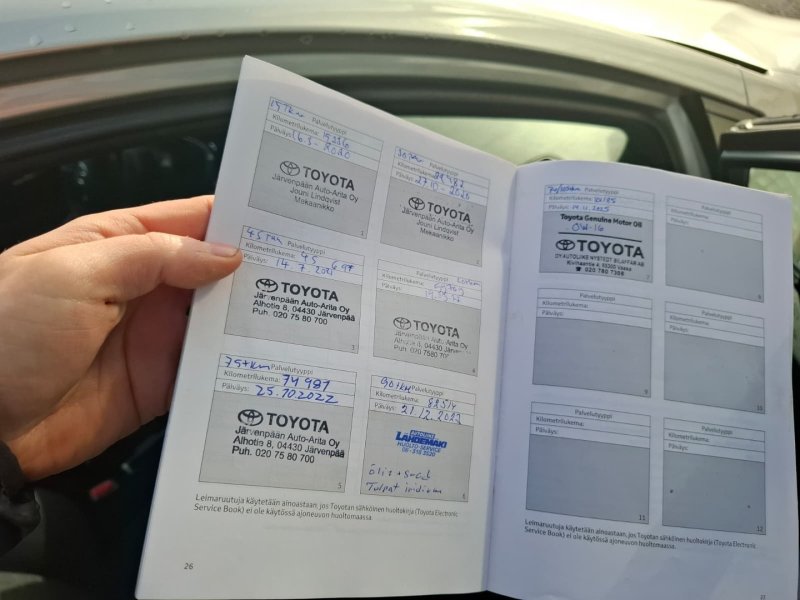 15 Tkm Palvelutyyppi
Kilometrilukema:
Päiväys: 2020
TOYOTA
Järvenpään Auto-Arita Oy
Jouni Lindqvist
Mekaanikko
1
Palvelutyyppi
Kilometrilukema:
Päiväys: 27.10-2020
TOYOTA
Järvenpään Auto-Arita Oy
Jouni Lindqvist
Mekaanikko
2
45 Tkm Palvelutyyppi
Kilometrilukema: 45
Päiväys: 14.7.2021
TOYOTA
Järvenpään Auto-Arita Oy
Alhotie 8, 04430 Järvenpää
Puh. 020 75 80 700
3
Palvelutyyppi
Kilometrilukema:
Päiväys:
TOYOTA
Järvenpään Auto-Arita Oy
Alhotie 8, 04430
Puh. 020 7580
4
75tkm Palvelutyyppi
Kilometrilukema: 74 981
Päiväys: 25.10.2022
TOYOTA
Järvenpään Auto-Arita Oy
Alhotie 8, 04430 Järvenpää
Puh. 020 75 80 700
5
90tkm Palvelutyyppi
Kilometrilukema:
Päiväys: 21.12.2023
LAHDEMÄKI
HUOLTO SERVICE
Öljy + Suod.
Tulpat iridium
6
Leimaruutuja käytetään ainoastaan, jos Toyotan sähköinen huoltokirja (Toyota Electronic
Service Book) ei ole käytössä ajoneuvon huoltomaassa.
26
Palvelutyyppi
Kilometrilukema:
Päiväys: 2025
Toyota Genuine Motor Oil
0W-16
TOYOTA
OY AUTOLIIKE NYSTEDT BILAFFÄR AB
Kivihaantie 4, 65300 Vaasa
☎ 020 780 7356
7
Palvelutyyppi
Kilometrilukema:
Päiväys:
8
Palvelutyyppi
Kilometrilukema:
Päiväys:
9
Palvelutyyppi
Kilometrilukema:
Päiväys:
10
Palvelutyyppi
Kilometrilukema:
Päiväys:
11
Palvelutyyppi
Kilometrilukema:
Päiväys:
12
Leimaruutuja käytetään ainoastaan, jos Toyotan sähköinen huoltokirja (Toyota Electronic
Service Book) ei ole käytössä ajoneuvon huoltomaassa.